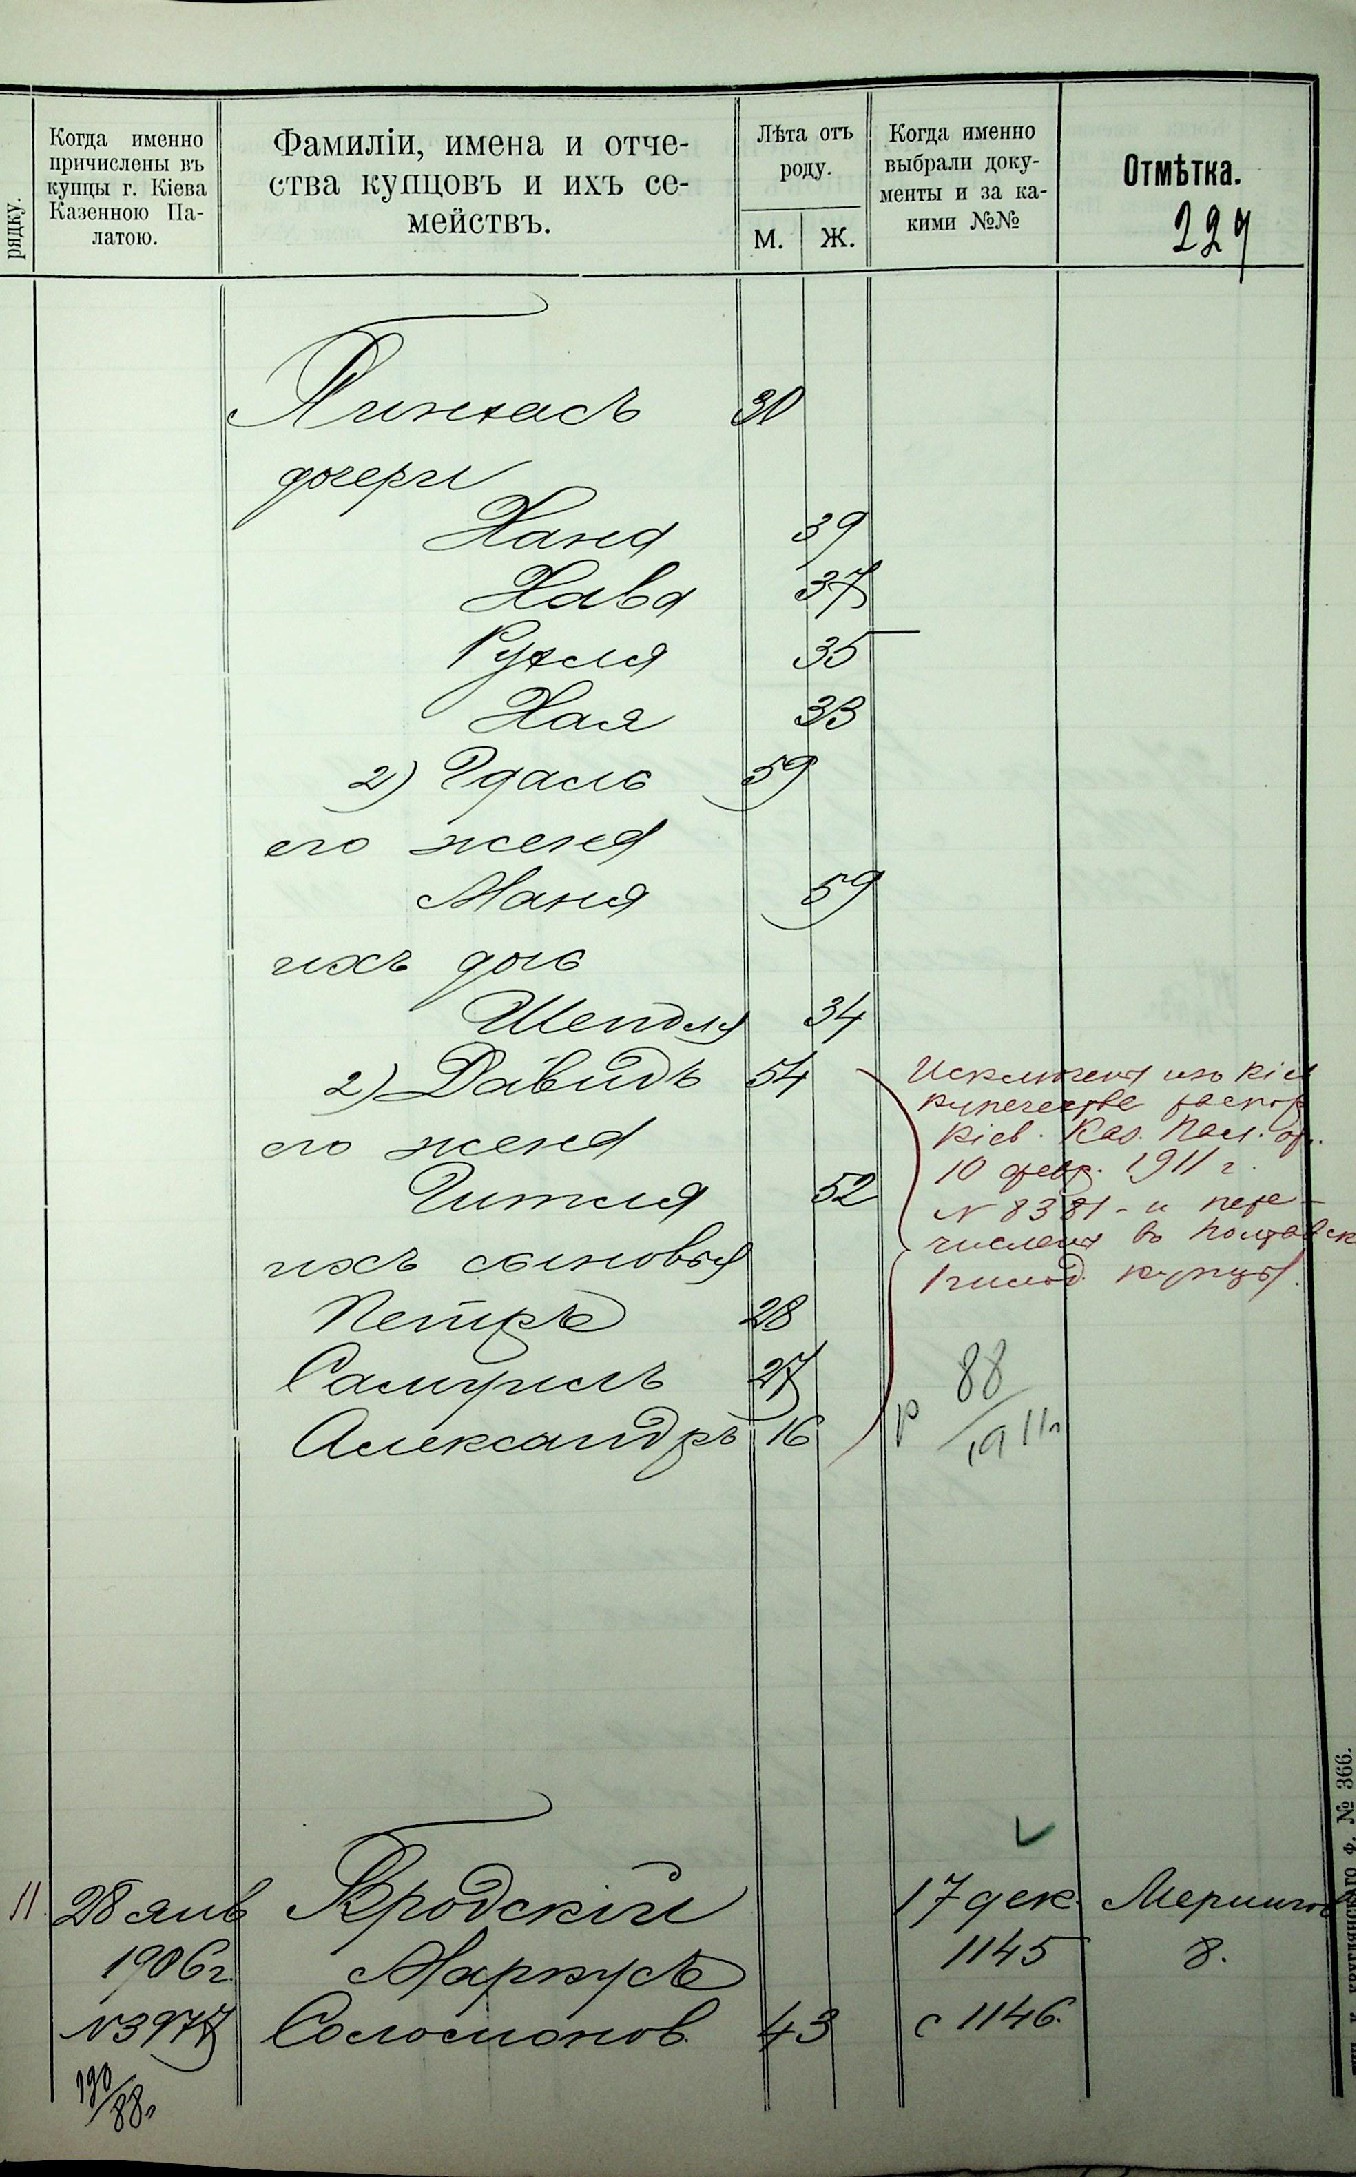 рядку.
Когда именно
причислены въ
купцы г. Кіева
Казенною Па-
латою.
Фамиліи, имена и отче-
ства купцовъ и ихъ се-
мействъ.
Лѣта отъ
роду.
М. Ж.
Когда именно
выбрали доку-
менты и за ка-
кими №№
Отмѣтка.
229
Пинхасъ 30
дочери
Хана 39
Хава 37
Рухля 35
Хая 33
2) Гдаль 59
его жена
Маня 59
ихъ дочь
34
2) Давидъ 54
его жена
Гитля 52
ихъ сыновья
Петръ 28
Самуилъ 27
Александръ 16
Исключены изъ Кіев
купечества распор
Кіев. Каз. Пал. от
10 февр. 1911 г.
N 8381 - и пере-
числены въ Полтавск
1 гильд. купцы.
р 88
1911г
11 28 янв Бродскій 17 дек.
1906г. Маркусъ 1145 8.
Соломонов. 43 с 1146.
190/88.
Ф. № 366.